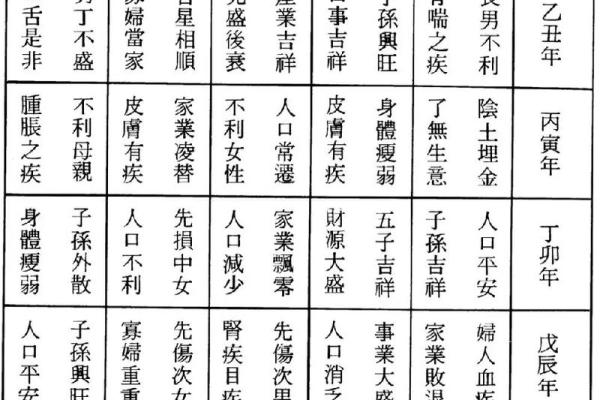 乙丑年
男不利
喘之疾
孫興旺
事吉祥
業吉祥
盛後衰
星相順
婦當家
丁不盛
舌是非
丙寅年
陰土埋金
了無生意
身體瘦弱
皮膚有疾
人口常遷
不利女性
家業凌替
皮膚有疾
不利母親
腫脹之疾
丁卯年
人口平安
子孫吉祥
五子吉祥
財源大盛
家業飄零
人口減少
先損中女
人口不利
子孫外散
身體瘦弱
戊辰年
婦人血疾
家業敗退
事業大盛
人口消乏
先傷次男
腎疾目疾
先傷次女
寡婦重重
子孫興旺
人口平安